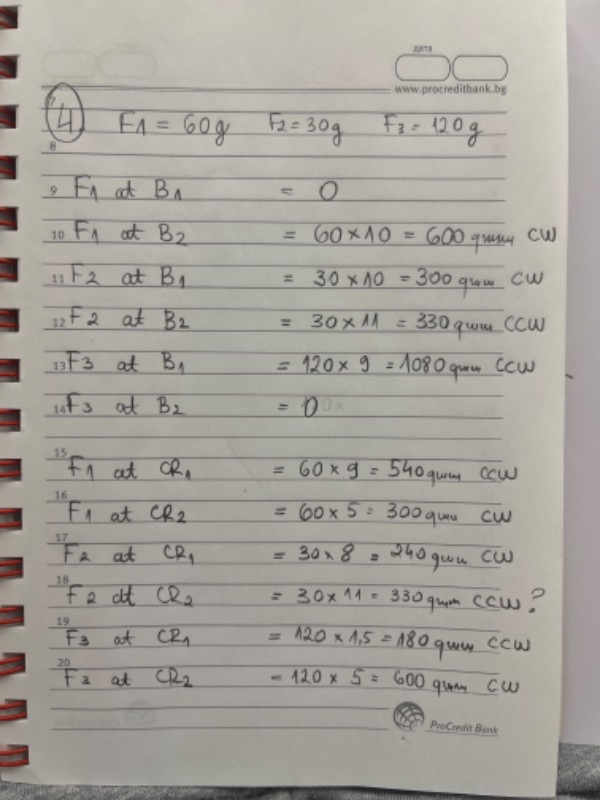 дата
www.procreditbank.bg
7
4 F1 = 60g F2 = 30g F3 = 120g
8
9 F1 at B1 = 0
10 F1 at B2 = 60×10 = 600 gmm CW
11 F2 at B1 = 30×10 = 300 gmm CW
12 F2 at B2 = 30×11 = 330 gmm CCW
13 F3 at B1 = 120×9 = 1080 gmm CCW
14 F3 at B2 = 0
15
F1 at CR1 = 60×9 = 540 gmm CCW
16
F1 at CR2 = 60×5 = 300 gmm CW
17
F2 at CR1 = 30×8 = 240 gmm CW
18
F2 at CR2 = 30×11 = 330 gmm CCW?
19
F3 at CR1 = 120×1,5 = 180 gmm CCW
20
F3 at CR2 = 120×5 = 600 gmm CW
ProCredit Bank